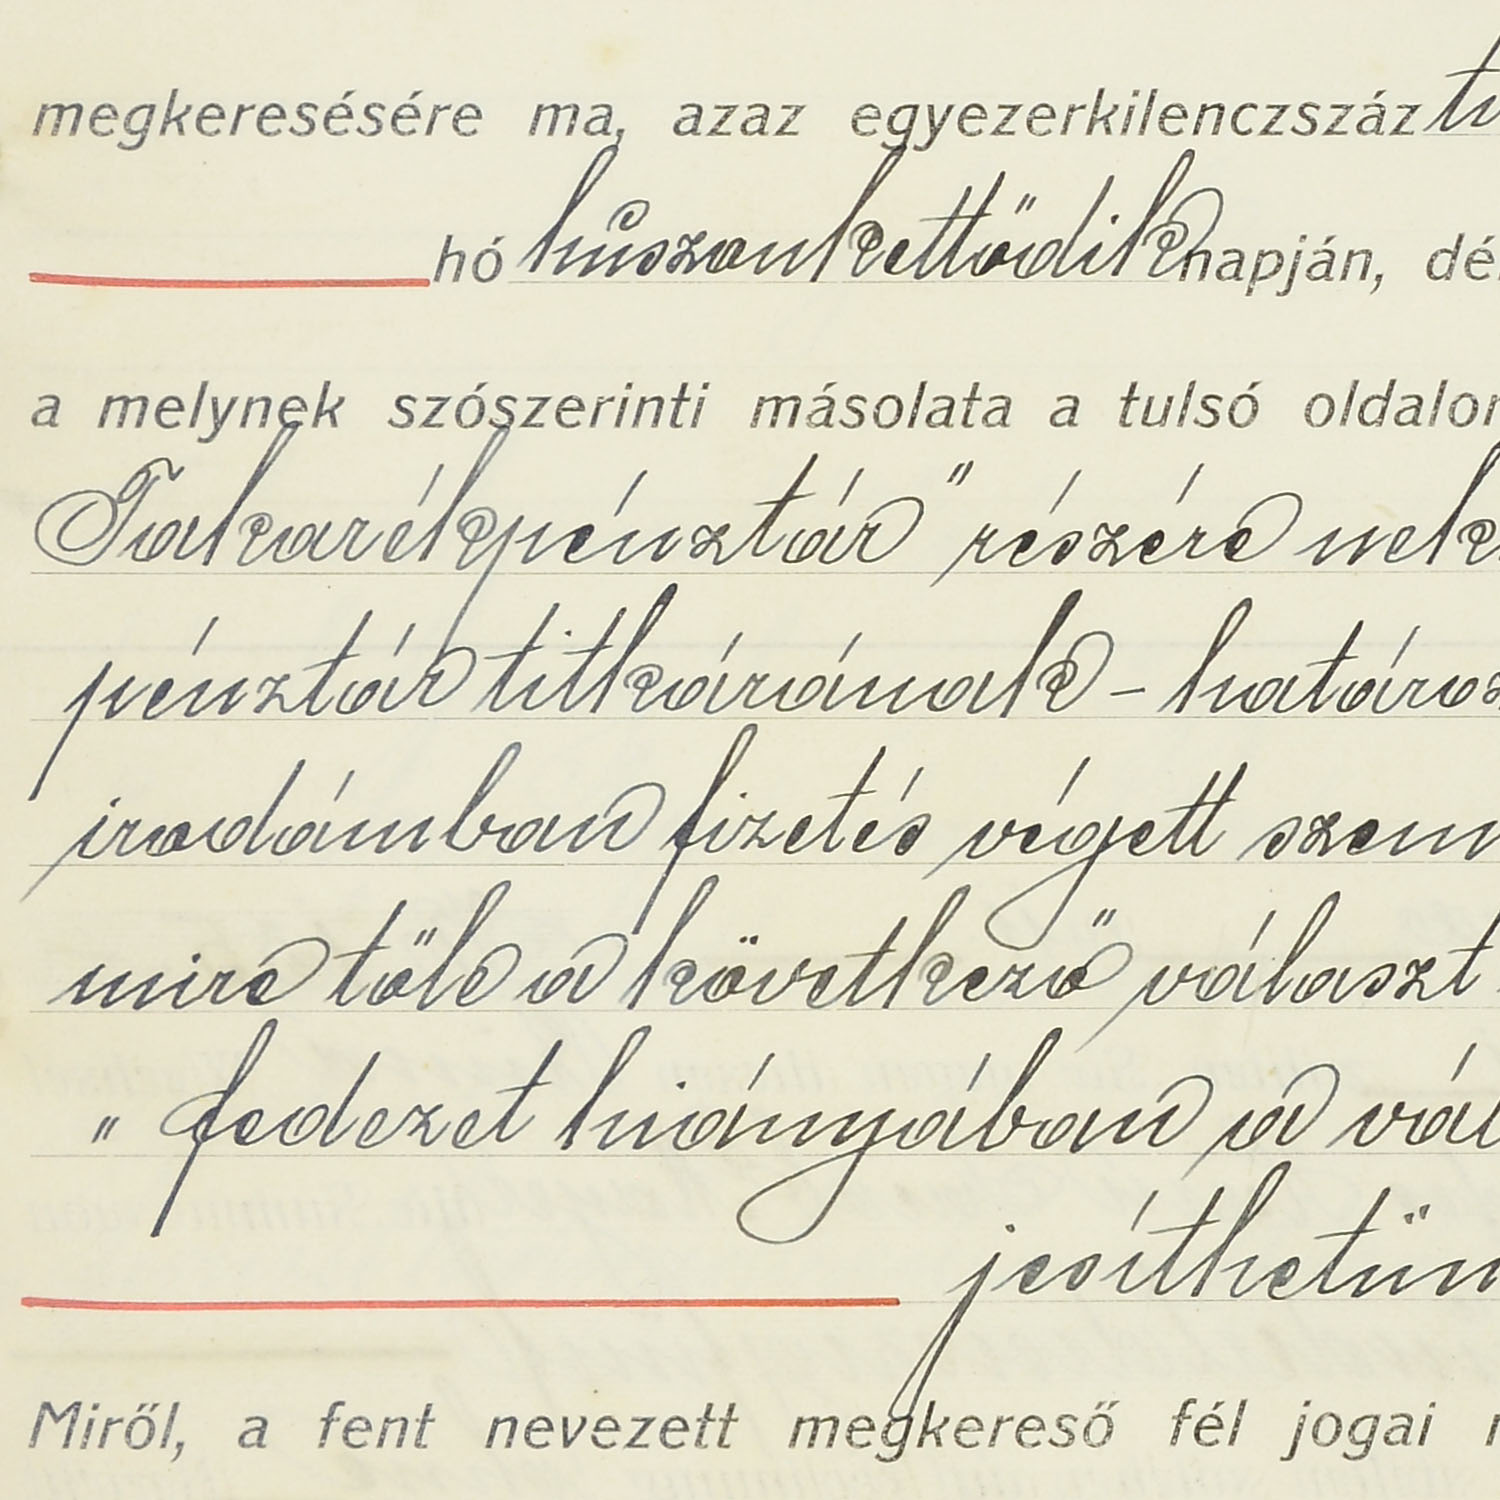 megkeresésére ma, azaz egyezerkilenczszáz
hó huszonkettödik napján,
a melynek szószerinti másolata a tulsó
Takarékpénztár" részére
pénztár titkárának -
irodámban fizetés végett
mire töle a következö választ
„fedezet hiányában a
jesíthetün
Miről, a fent nevezett megkereső fél jogai